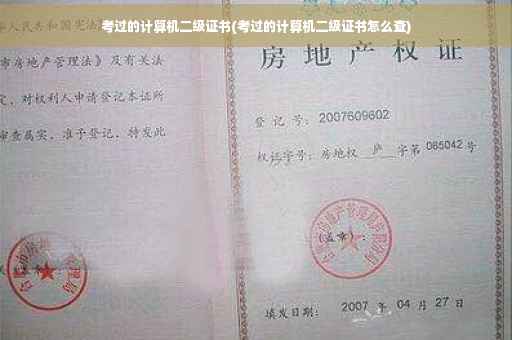 考过的计算机二级证书(考过的计算机二级证书怎么查)
人民共和国宪法
市房地产管理法》及有关法
定，对权利人申请登记本证所
审查属实，准予登记，特发此
房地产权证
登记号：2007609602
权证字号：房地权 庐 字第 085042 号
(盖章)：
填发日期： 2007 年 04 月 27 日